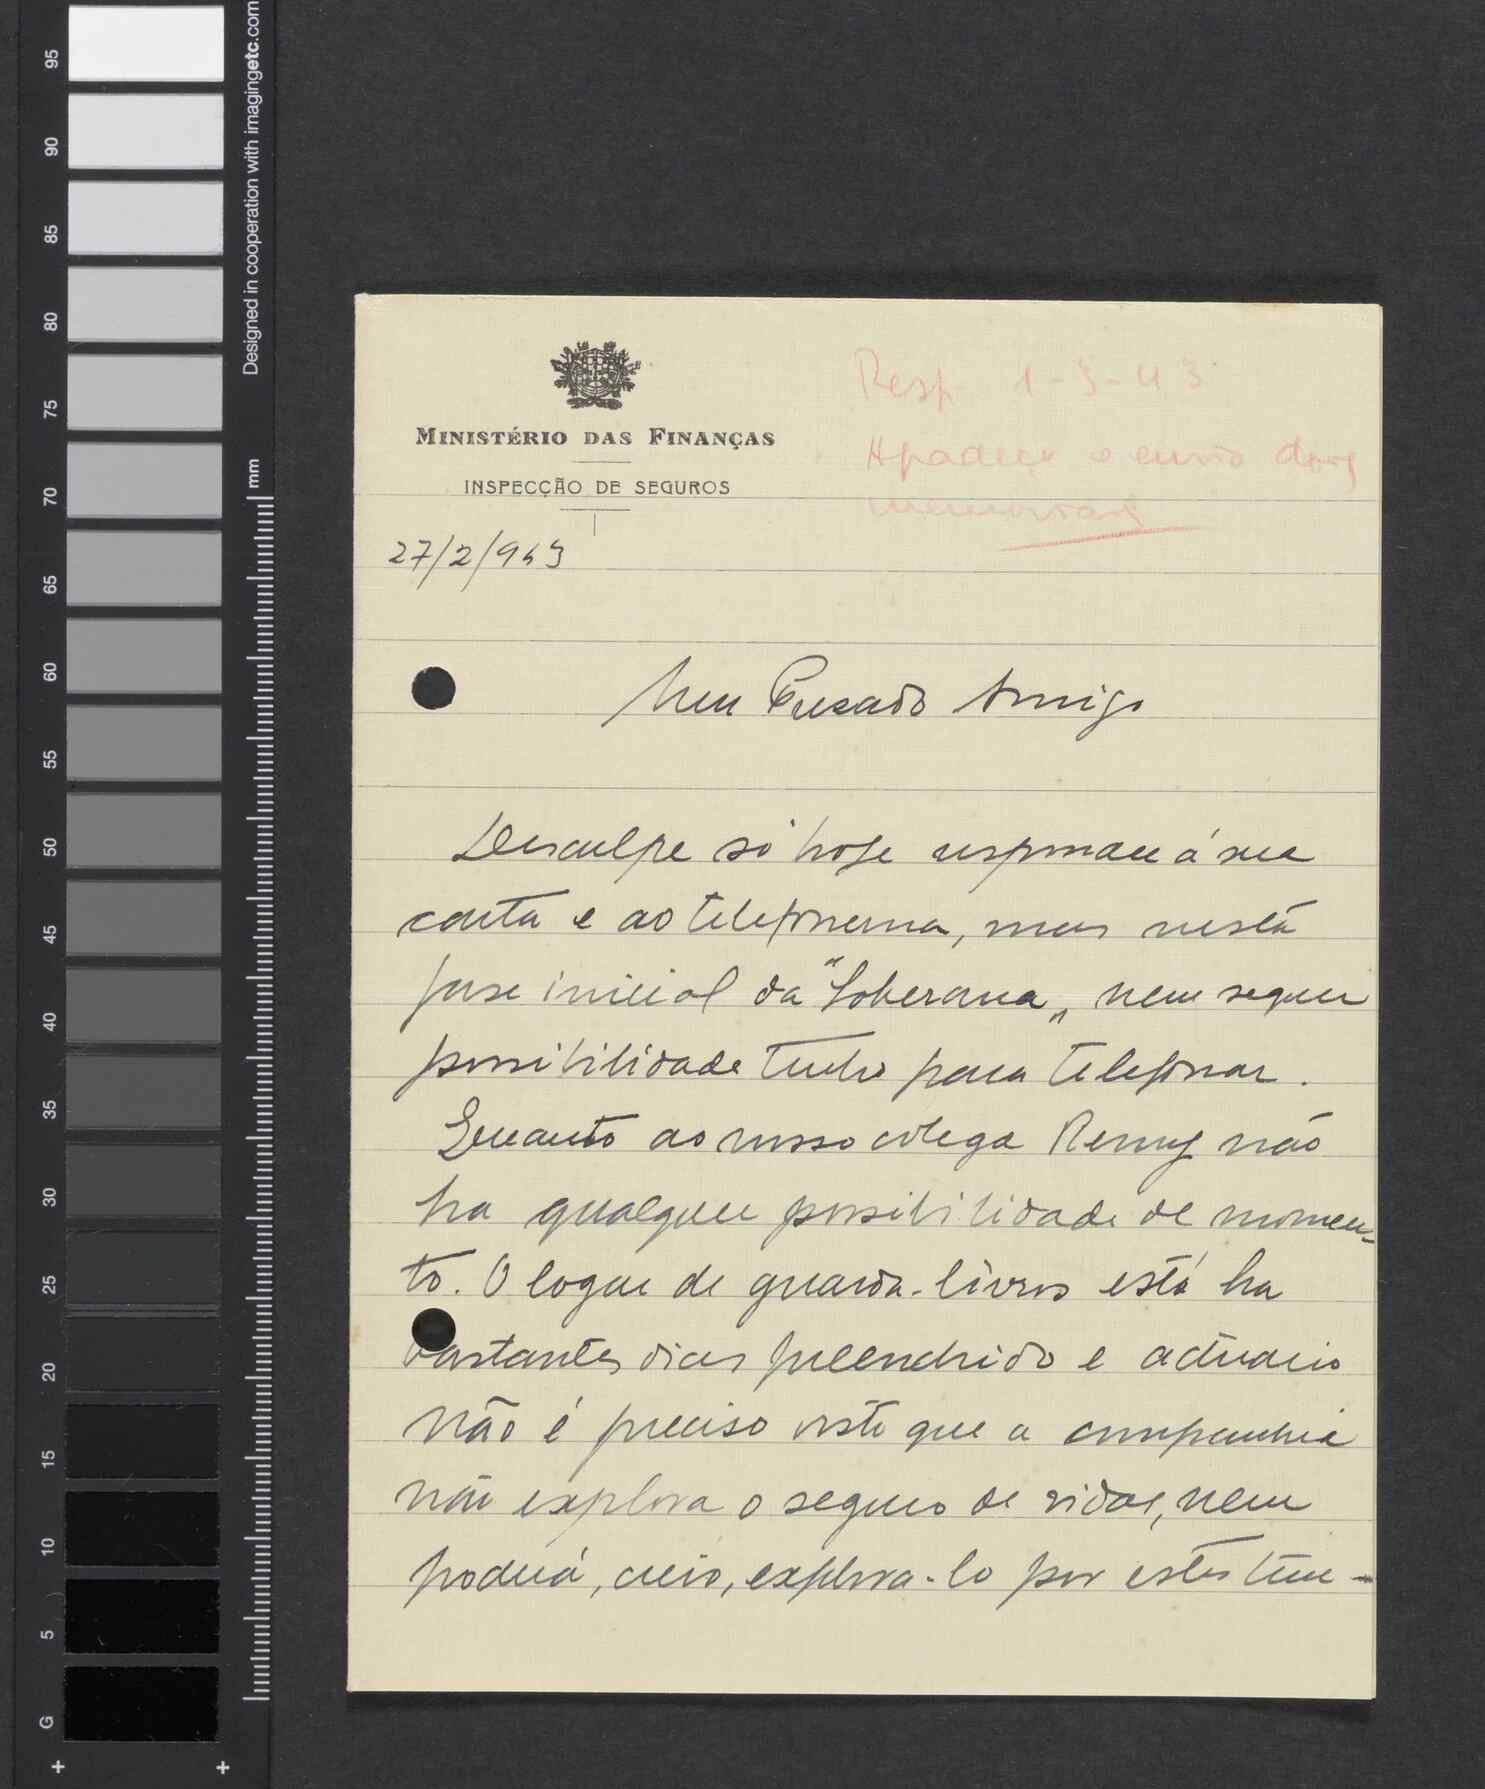 95
90
85
80
75
70
65
60
55
50
45
40
35
30
25
20
15
10
5
G
Designed in cooperation with imagingetc.com
mm
MINISTÉRIO DAS FINANÇAS
INSPECÇÃO DE SEGUROS
Resp. 1-3-43
Agradeço o envio dos
27/2/943
Meu Presado Amigo
Desculpe só hoje responder á sua
carta e ao telefonema, mas nesta
fase inicial da "Soberana„ nem sequer
possibilidade tenho para telefonar.
Quanto ao nosso colega Remy não
ha qualquer possibilidade de momen-
to. O logar de guarda-livros está ha
bastantes dias preenchido e actuario
não é preciso visto que a companhia
não explora o seguro de vidas, nem
poderá, creio, explora-lo por estes tem-